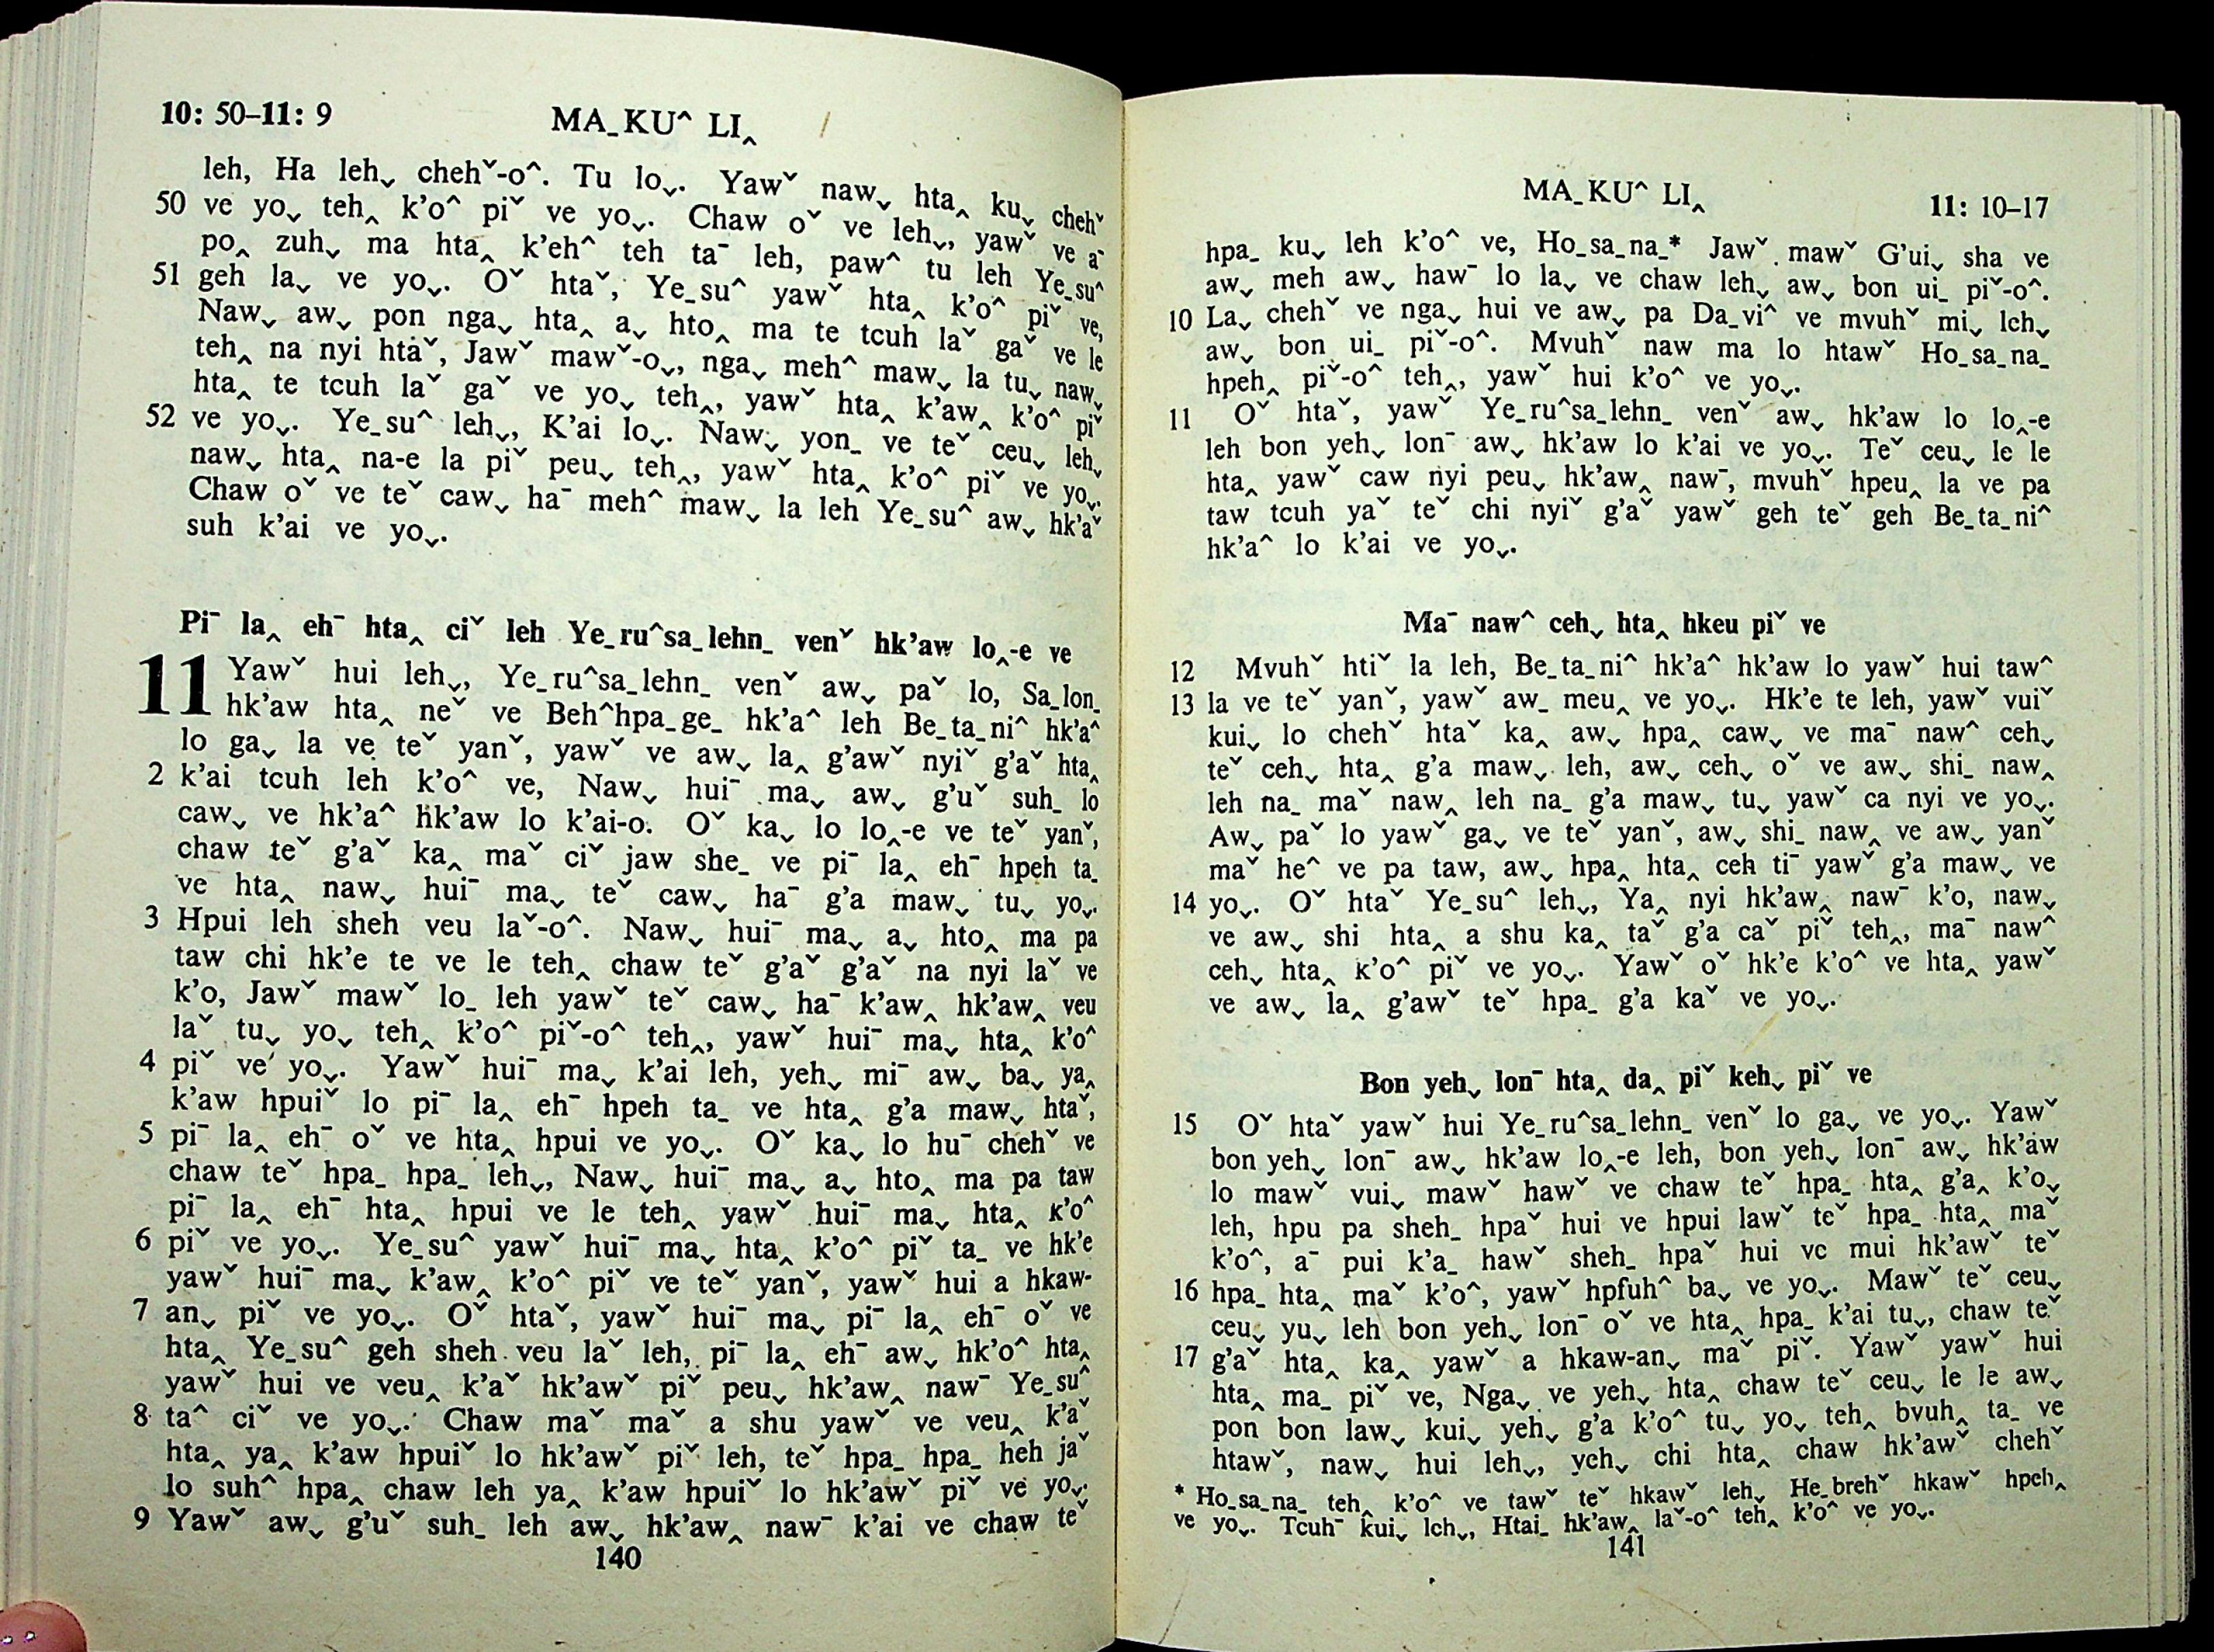 10: 50–11: 9 MA_KU^ LI‸
leh, Ha lehˬ chehˇ-o^. Tu loˬ. Yawˇ nawˬ hta‸ kuˬ chehˇ
50 ve yoˬ teh‸ k’o^ piˇ ve yoˬ. Chaw oˇ ve lehˬ, yawˇ ve aˉ
po‸ zuhˬ ma hta‸ k’eh^ teh taˉ leh, paw^ tu leh Ye_su^
51 geh laˬ ve yoˬ. Oˇ htaˇ, Ye_su^ yawˇ hta‸ k’o^ piˇ ve,
Nawˬ awˬ pon ngaˬ hta‸ aˬ hto‸ ma te tcuh laˇ gaˇ ve le
teh‸ na nyi htaˇ, Jawˇ mawˇ-oˬ, ngaˬ meh^ mawˬ la tuˬ nawˬ
hta‸ te tcuh laˇ gaˇ ve yoˬ teh‸, yawˇ hta‸ k’aw‸ k’o^ piˇ
52 ve yoˬ. Ye_su^ lehˬ, K’ai loˬ. Nawˬ yon_ ve teˇ ceuˬ lehˬ
nawˬ hta‸ na-e la piˇ peuˬ teh‸, yawˇ hta‸ k’o^ piˇ ve yoˬ.
Chaw oˇ ve teˇ cawˬ haˉ meh^ mawˬ la leh Ye_su^ awˬ hk’aˇ
suh k’ai ve yoˬ.
Piˉ la‸ ehˉ hta‸ ciˇ leh Ye_ru^sa_lehn_ venˇ hk’aw lo‸-e ve
11 Yawˇ hui lehˬ, Ye_ru^sa_lehn_ venˇ awˬ paˇ lo, Sa_lon_
hk’aw hta‸ neˇ ve Beh^hpa_ge_ hk’a^ leh Be_ta_ni^ hk’a^
lo gaˬ la ve teˇ yanˇ, yawˇ ve awˬ la‸ g’awˇ nyiˇ g’aˇ hta‸
2 k’ai tcuh leh k’o^ ve, Nawˬ huiˉ maˬ awˬ g’uˇ suh_ lo
cawˬ ve hk’a^ hk’aw lo k’ai-o. Oˇ kaˬ lo lo‸-e ve teˇ yanˇ,
chaw teˇ g’aˇ ka‸ maˇ ciˇ jaw she_ ve piˉ la‸ ehˉ hpeh ta_
ve hta‸ nawˬ huiˉ maˬ teˇ cawˬ haˉ g’a mawˬ tuˬ yoˬ.
3 Hpui leh sheh veu laˇ-o^. Nawˬ huiˉ maˬ aˬ hto‸ ma pa
taw chi hk’e te ve le teh‸ chaw teˇ g’aˇ g’aˇ na nyi laˇ ve
k’o, Jawˇ mawˇ lo_ leh yawˇ teˇ cawˬ haˉ k’aw‸ hk’aw‸ veu
laˇ tuˬ yoˬ teh‸ k’o^ piˇ-o^ teh‸, yawˇ huiˉ maˬ hta‸ k’o^
4 piˇ ve yoˬ. Yawˇ huiˉ maˬ k’ai leh, yehˬ miˉ awˬ baˬ ya‸
k’aw hpuiˇ lo piˉ la‸ ehˉ hpeh ta_ ve hta‸ g’a mawˬ htaˇ,
5 piˉ la‸ ehˉ oˇ ve hta‸ hpui ve yoˬ. Oˇ kaˬ lo huˉ chehˇ ve
chaw teˇ hpa_ hpa_ lehˬ, Nawˬ huiˉ maˬ aˬ hto‸ ma pa taw
piˉ la‸ ehˉ hta‸ hpui ve le teh‸ yawˇ huiˉ maˬ hta‸ k’o^
6 piˇ ve yoˬ. Ye_su^ yawˇ huiˉ maˬ hta‸ k’o^ piˇ ta_ ve hk’e
yawˇ huiˉ maˬ k’aw‸ k’o^ piˇ ve teˇ yanˇ, yawˇ hui a hkaw-
7 anˬ piˇ ve yoˬ. Oˇ htaˇ, yawˇ huiˉ maˬ piˉ la‸ ehˉ oˇ ve
hta‸ Ye_su^ geh sheh veu laˇ leh, piˉ la‸ ehˉ awˬ hk’o^ hta‸
yawˇ hui ve veu‸ k’aˇ hk’awˇ piˇ peuˬ hk’aw‸ nawˉ Ye_su^
8 ta^ ciˇ ve yoˬ. Chaw maˇ maˇ a shu yawˇ ve veu‸ k’aˇ
hta‸ ya‸ k’aw hpuiˇ lo hk’awˇ piˇ leh, teˇ hpa_ hpa_ heh jaˇ
lo suh^ hpa‸ chaw leh ya‸ k’aw hpuiˇ lo hk’awˇ piˇ ve yoˬ.
9 Yawˇ awˬ g’uˇ suh_ leh awˬ hk’aw‸ nawˉ k’ai ve chaw teˇ
140
MA_KU^ LI‸ 11: 10–17
hpa_ kuˬ leh k’o^ ve, Ho_sa_na_* Jawˇ mawˇ G’uiˬ sha ve
awˬ meh awˬ hawˉ lo laˬ ve chaw lehˬ awˬ bon ui_ piˇ-o^.
10 Laˬ chehˇ ve ngaˬ hui ve awˬ pa Da_vi^ ve mvuhˇ miˬ lehˬ
awˬ bon ui_ piˇ-o^. Mvuhˇ naw ma lo htawˇ Ho_sa_na_
hpeh‸ piˇ-o^ teh‸, yawˇ hui k’o^ ve yoˬ.
11 Oˇ htaˇ, yawˇ Ye_ru^sa_lehn_ venˇ awˬ hk’aw lo lo‸-e
leh bon yehˬ lonˉ awˬ hk’aw lo k’ai ve yoˬ. Teˇ ceuˬ le le
hta‸ yawˇ caw nyi peuˬ hk’aw‸ nawˉ, mvuhˇ hpeu‸ la ve pa
taw tcuh yaˇ teˇ chi nyiˇ g’aˇ yawˇ geh teˇ geh Be_ta_ni^
hk’a^ lo k’ai ve yoˬ.
Maˉ naw^ cehˬ hta‸ hkeu piˇ ve
12 Mvuhˇ htiˇ la leh, Be_ta_ni^ hk’a^ hk’aw lo yawˇ hui taw^
13 la ve teˇ yanˇ, yawˇ aw_ meu‸ ve yoˬ. Hk’e te leh, yawˇ vuiˇ
kuiˬ lo chehˇ htaˇ ka‸ awˬ hpa‸ cawˬ ve maˉ naw^ cehˬ
teˇ cehˬ hta‸ g’a mawˬ leh, awˬ cehˬ oˇ ve awˬ shi_ naw‸
leh na_ maˇ naw‸ leh na_ g’a mawˬ tuˬ yawˇ ca nyi ve yoˬ.
Awˬ paˇ lo yawˇ gaˬ ve teˇ yanˇ, awˬ shi_ naw‸ ve awˬ yanˇ
maˇ he^ ve pa taw, awˬ hpa‸ hta‸ ceh tiˉ yawˇ g’a mawˬ ve
14 yoˬ. Oˇ htaˇ Ye_su^ lehˬ, Ya‸ nyi hk’aw‸ nawˉ k’o, nawˬ
ve awˬ shi hta‸ a shu ka‸ taˇ g’a caˇ piˇ teh‸, maˉ naw^
cehˬ hta‸ k’o^ piˇ ve yoˬ. Yawˇ oˇ hk’e k’o^ ve hta‸ yawˇ
ve awˬ la‸ g’awˇ teˇ hpa_ g’a kaˇ ve yoˬ.
Bon yehˬ lonˉ hta‸ da‸ piˇ kehˬ piˇ ve
15 Oˇ htaˇ yawˇ hui Ye_ru^sa_lehn_ venˇ lo gaˬ ve yoˬ. Yawˇ
bon yehˬ lonˉ awˬ hk’aw lo‸-e leh, bon yehˬ lonˉ awˬ hk’aw
lo mawˇ vuiˬ mawˇ hawˇ ve chaw teˇ hpa_ hta‸ g’a‸ k’oˬ
leh, hpu pa sheh_ hpaˇ hui ve hpui lawˇ teˇ hpa_ hta‸ maˇ
k’o^, aˉ pui k’a_ hawˇ sheh_ hpaˇ hui ve mui hk’awˇ teˇ
16 hpa_ hta‸ maˇ k’o^, yawˇ hpfuh^ baˬ ve yoˬ. Mawˇ teˇ ceuˬ
ceuˬ yuˬ leh bon yehˬ lonˉ oˇ ve hta‸ hpa_ k’ai tuˬ, chaw teˇ
17 g’aˇ hta‸ ka‸ yawˇ a hkaw-anˬ maˇ piˇ. Yawˇ yawˇ hui
hta‸ ma_ piˇ ve, Ngaˬ ve yehˬ hta‸ chaw teˇ ceuˬ le le awˬ
pon bon lawˬ kuiˬ yehˬ g’a k’o^ tuˬ yoˬ teh‸ bvuh‸ ta_ ve
htawˇ, nawˬ hui lehˬ, yehˬ chi hta‸ chaw hk’awˇ chehˇ
* Ho_sa_na_ teh‸ k’o^ ve tawˇ teˇ hkawˇ lehˬ He_brehˇ hkawˇ hpeh‸
ve yoˬ. Tcuhˉ kuiˬ lehˬ, Htai_ hk’aw‸ laˇ-o^ teh‸ k’o^ ve yoˬ.
141